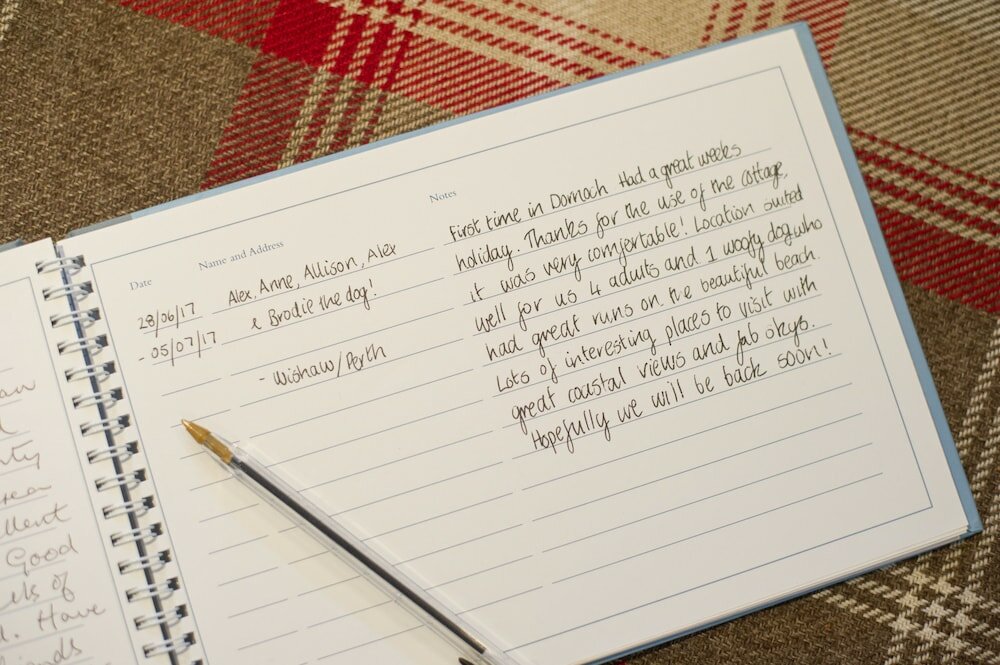 Date
Name and Address
Notes
28/06/17
- 05/07/17
Alex, Anne, Allison, Alex
& Brodie the dog!
- Wishaw/Perth
First time in Dornoch Had a great weeks
holiday. Thanks for the use of the cottage,
it was very comfortable! Location suited
well for us 4 adults and 1 woofy dog who
had great runs on the beautiful beach.
Lots of interesting places to visit with
great coastal views and fab skys.
Hopefully we will be back soon!
Good
of
Have